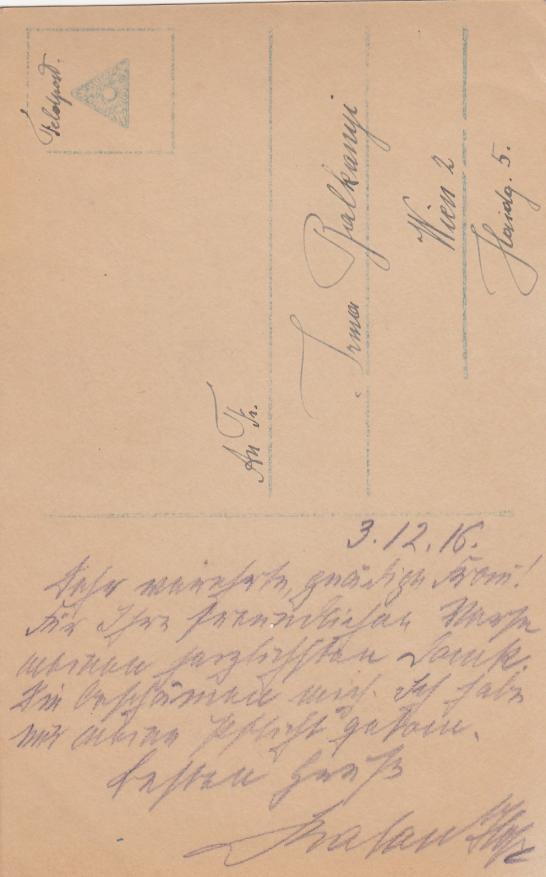 Feldpost.
An Fr.
Irma Balkanyi
Wien 2
Haidg. 5.
3.12.16.
Sehr verehrte, gnädige Frau!
Für Ihre freundlichen Verse
meinen herzlichsten Dank.
Sie beschämen mich. Ich habe
nur meine Pflicht getan.
Besten Gruß